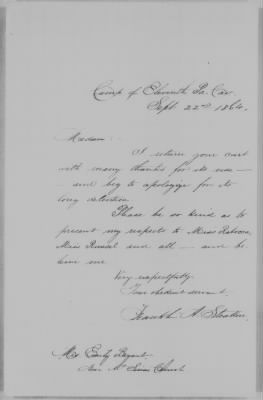 Camp of Eleventh Pa. Cav.
Sept 22nd 1864.
Madam
I return your cart
with many thanks for its use -
- and beg to apologize for its
long detention.
Please be so kind as to
present my respects to Miss
Miss and all - and be
lieve me
Very respectfully
Your obedient servant.
Frankln A. Stratton.
Mrs Emily Bryant
Near